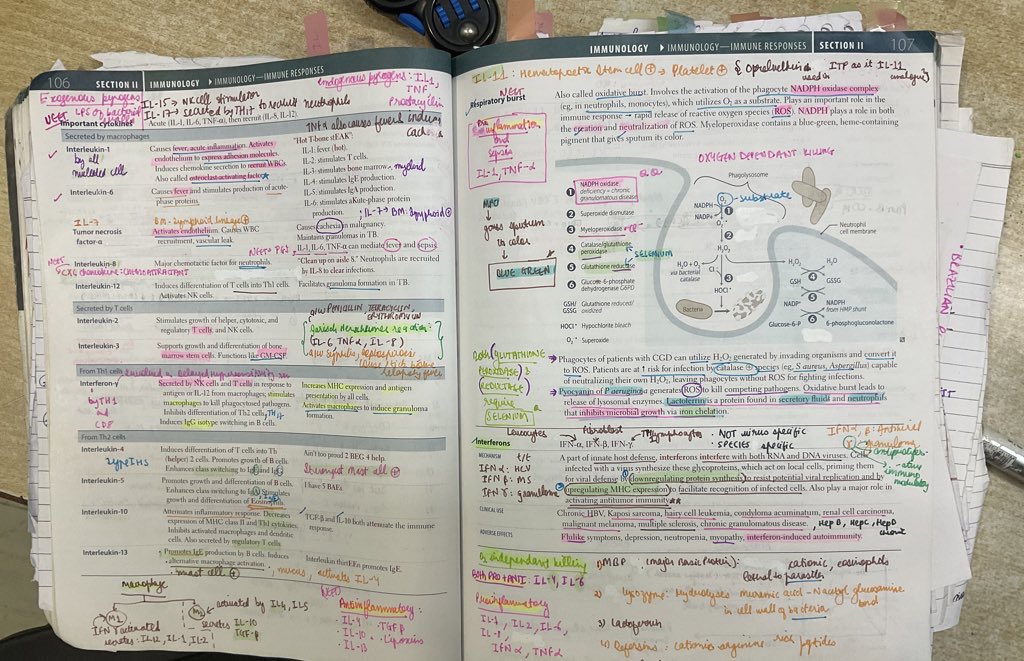 106 SECTION II IMMUNOLOGY ▶ IMMUNOLOGY—IMMUNE RESPONSES
Exogenous pyrogens
NEET LPS of bacteria
IL-15 → NK cell stimulator
IL-17 → secreted by TH17 to recruit neutrophils
endogenous pyrogens: IL-1,
TNF
Important cytokines
Acute (IL-1, IL-6, TNF-α), then recruit (IL-8, IL-12).
TNF α also causes fever inducing
Secreted by macrophages
Interleukin-1
by all nucleated cell
Causes fever, acute inflammation. Activates
endothelium to express adhesion molecules.
Induces chemokine secretion to recruit WBCs.
Also called osteoclast-activating factor.
"Hot T-bone stEAK":
IL-1: fever (hot).
IL-2: stimulates T cells.
IL-3: stimulates bone marrow. myeloid
IL-4: stimulates IgE production.
IL-5: stimulates IgA production.
IL-6: stimulates aKute-phase protein
production.
; IL-7 → BM: lymphoid
Interleukin-6
Causes fever and stimulates production of acute-
phase proteins.
IL-7
BM - lymphoid lineage
Tumor necrosis
factor-α
Activates endothelium. Causes WBC
recruitment, vascular leak.
Causes cachexia in malignancy.
Maintains granulomas in TB.
IL-1, IL-6, TNF-α can mediate fever and sepsis.
Interleukin-8
CXC chemokine : CHEMOATTRACTANT
Major chemotactic factor for neutrophils.
"Clean up on aisle 8." Neutrophils are recruited
by IL-8 to clear infections.
Interleukin-12
Induces differentiation of T cells into Th1 cells.
Activates NK cells.
Facilitates granuloma formation in TB.
Secreted by T cells
Interleukin-2
Stimulates growth of helper, cytotoxic, and
regulatory T cells, and NK cells.
PENICILLIN TETRACYCLIN,
ERYTHROMYCIN
Jarisch herxheimer reaction:
(IL-6 TNF α, IL-8)
Interleukin-3
Supports growth and differentiation of bone
marrow stem cells. Functions like GM-CSF.
From Th1 cells
involved in delayed hypersensitivity
Interferon-γ
by TH1
and
CD8
Secreted by NK cells and T cells in response to
antigen or IL-12 from macrophages; stimulates
macrophages to kill phagocytosed pathogens.
Inhibits differentiation of Th2 cells.
Induces IgG isotype switching in B cells.
Increases MHC expression and antigen
presentation by all cells.
Activates macrophages to induce granuloma
formation.
From Th2 cells
Interleukin-4
Induces differentiation of T cells into Th
(helper) 2 cells. Promotes growth of B cells.
Enhances class switching to IgE and IgG.
Ain't too proud 2 BEG 4 help.
Interleukin-5
Promotes growth and differentiation of B cells.
Enhances class switching to IgA. Stimulates
growth and differentiation of Eosinophils.
I have 5 BAEs.
Interleukin-10
Attenuates inflammatory response. Decreases
expression of MHC class II and Th1 cytokines.
Inhibits activated macrophages and dendritic
cells. Also secreted by regulatory T cells.
TGF-β and IL-10 both attenuate the immune
response.
Interleukin-13
Promotes IgE production by B cells. Induces
alternative macrophage activation.
Interleukin thirtEEn promotes IgE.
mast cell
macrophage
M1
M2
activated by IL4, IL5
secretes IL-10
TGF-β
IFN γ activated
secretes: IL12, IL-1, IL-2
Antiinflammatory:
IL-4 TGF β
IL-10 · Lipoxins
IL-13
IMMUNOLOGY ▶ IMMUNOLOGY—IMMUNE RESPONSES SECTION II 107
IL-11: Hematopoetic Stem cell → Platelet
& Oprelvekin is used in ITP as it IL-11
Respiratory burst
Also called oxidative burst. Involves the activation of the phagocyte NADPH oxidase complex
(eg, in neutrophils, monocytes), which utilizes O2 as a substrate. Plays an important role in the
immune response → rapid release of reactive oxygen species (ROS). NADPH plays a role in both
the creation and neutralization of ROS. Myeloperoxidase contains a blue-green, heme-containing
pigment that gives sputum its color.
inflammation
and
sepsis
IL-1, TNF-α
MPO
gives sputum
its color
BLUE GREEN
OXYGEN DEPENDANT KILLING
1 NADPH oxidase
deficiency = chronic
granulomatous disease
2 Superoxide dismutase
3 Myeloperoxidase
4 Catalase/glutathione
peroxidase
5 Glutathione reductase
SELENIUM
6 Glucose-6-phosphate
dehydrogenase (G6PD)
GSH/
GSSG
Glutathione reduced/
oxidized
HOCl• Hypochlorite bleach
O2•− Superoxide
Phagolysosome
O2 - substrate
NADPH
NADP+
1
O2•−
2
H2O2
H2O + O2
via bacterial
catalase
Cl−
3
HOCl•
Bacteria
Neutrophil
cell membrane
H2O2
H2O
4
GSH
GSSG
5
NADP+
NADPH
from HMP shunt
6
Glucose-6-P
6-phosphogluconolactone
Both (GLUTATHIONE
PEROXIDASE &
REDUCTASE)
require
SELENIUM
Phagocytes of patients with CGD can utilize H2O2 generated by invading organisms and convert it
to ROS. Patients are at ↑ risk for infection by catalase ⊕ species (eg, S aureus, Aspergillus) capable
of neutralizing their own H2O2, leaving phagocytes without ROS for fighting infections.
Pyocyanin of P aeruginosa generates ROS to kill competing pathogens. Oxidative burst leads to
release of lysosomal enzymes. Lactoferrin is a protein found in secretory fluids and neutrophils
that inhibits microbial growth via iron chelation.
Leucocytes Fibroblast T lymphocytes
• NOT virus specific
• SPECIES specific
IFN α, β: Antiviral
Interferons
IFN-α, IFN-β, IFN-γ
MECHANISM
A part of innate host defense, interferons interfere with both RNA and DNA viruses. Cells
infected with a virus synthesize these glycoproteins, which act on local cells, priming them
for viral defense by downregulating protein synthesis to resist potential viral replication and by
upregulating MHC expression to facilitate recognition of infected cells. Also play a major role in
activating antitumor immunity.
IFN α: HCV
IFN β: MS
IFN γ: granuloma
CLINICAL USE
Chronic HBV, Kaposi sarcoma, hairy cell leukemia, condyloma acuminatum, renal cell carcinoma,
malignant melanoma, multiple sclerosis, chronic granulomatous disease. , Hep B, Hep C, Hep D
chronic
ADVERSE EFFECTS
Flulike symptoms, depression, neutropenia, myopathy, interferon-induced autoimmunity.
O2 independent killing
Both PRO + ANTI: IL-4, IL-6
Proinflammatory
IL-1, IL-2, IL-6,
IL-8,
IFN α, TNF α
1) MBP (major basic protein): cationic, eosinophils
2) Lysozyme: Hydrolyses muramic acid - N acetyl glucosamine
bond
in cell wall of bacteria
3) Lactoferrin
4) Defensins: cationic arginine rich peptides